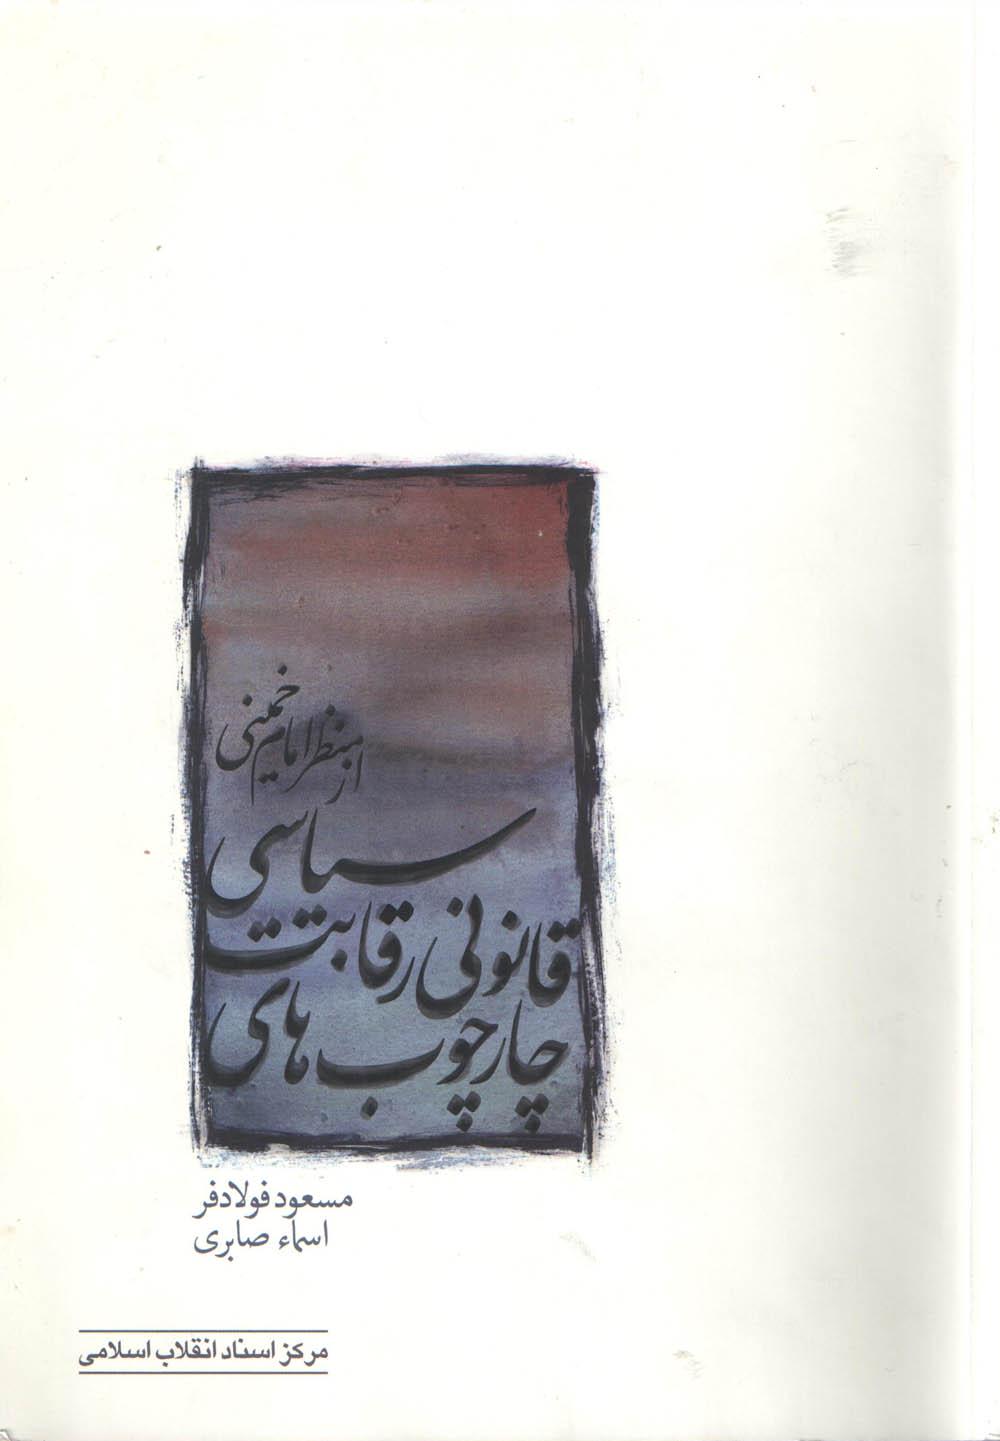 چارچوب های
قانونی رقابت
سیاسی
از منظر امام خمینی
مسعود فولادفر
اسماء صابری
مرکز اسناد انقلاب اسلامی